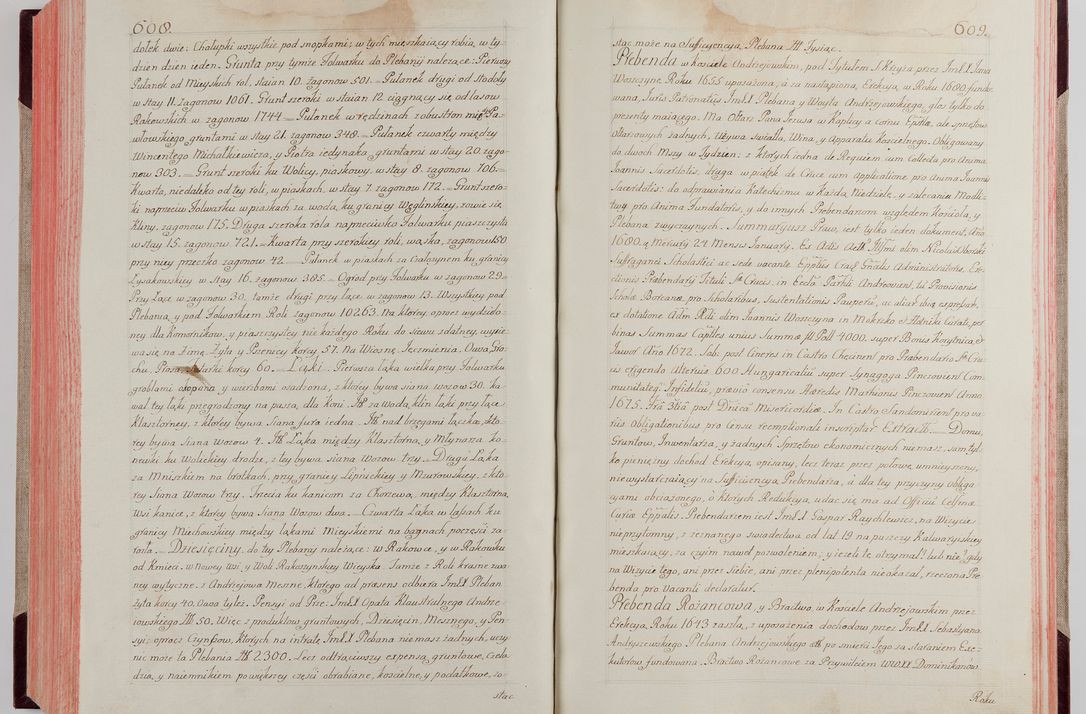 608.
dołek dwie: Chałupki wszystkie pod snopkami; w tych mieszkaiący robią, w ty-
dzień dzień ieden. Grunta przy tymże Folwarku do Plebanij należące: Pierwszy
Pułanek od Mieyskich rol, staian 10. zagonow 501. Pułanek drugi od Stodoły
w stay 11. zagonow 1061. Grunt szeroki w staian 12 ciągnący się od lasow
Rakowskich w zagonow 1744 Pułanek w rędzinach z obu stron między Pa-
włowskiego gruntami w stay 21. zagonow 348. Pułanek czwarty między
Wincentego Michałkiewicza, y Piotra iedynaka, gruntami w stay 20. zago-
now 303. Grunt szeroki ku Wolicy, piaskowy, w stay 8. zagonow 106.
Kwarta, niedaleko od tey roli, w piaskach, w stay 7. zagonow 172. Grunt szero-
ki naprzeciw Folwarku w piaskach za wodą, ku granicy Węglinskiey, zowie się
Kliny, zagonow 175. Druga szeroka rola naprzeciwko Folwarku piaszczysta
w stay 15. zagonow 721. Kwarta przy szerokiey roli, wąska, zagonow 150
przy niey przeczko zagonow 42 Pułanek w piaskach za Cmentarzem ku granicy
Łysakowskiey w stay 16. zagonow 385. Ogrod przy Folwarku w zagonow 29.
Przy Łące w zagonow 30, tamże drugi przy łące w zagonow 13. Wszystkiey pod
Plebanią, y pod Folwarkiem Roli zagonow 10263. Na ktorey, oprocz wydzielo-
ney dla Komornikow, y piaszczystey nie każdego Roku do siewu zdatney, wysie-
wa się na Zimę Zyta y Pszenicy korcy 57. Na Wiosnę Ięczmienia, Owsa, Gro-
chu, Prosa, Tatarki korcy 60. Łąki. Pierwsza łąka wielka przy Folwarku
groblami okopana y wierzbami osadzona, z ktorey bywa siana wozow 30. ka-
wał tey łąki przegrodzony na paszą, dla koni. Itt za wodą klin łąki przy łące
Klasztorney, z ktorey bywa Siana fura iedna. Itt nad brzegami łączka, kto-
rey bywa siana wozow 4. Itt Łąka między Klasztorną, y Młynarza ko-
newki ku Wolickiey drodze, z tey bywa siana Wozow trzy. Druga Łąka
za Mniszkiem na błotkach, przy granicy Łepinickiey y Mzurowskiey, z kto-
rey Siana Wozow trzy. Trzecia ku kanicom za Chorzewą, między Klasztorną
Wsi kanice, z ktorey bywa Siana Wozow dwa. Czwarta Łąka w lasach ku
granicy Miechowskiey między łąkami Mieyskiemi na bagnach poczęści za-
rosła. Dziesięciny do tey Plebanij należące: w Rakowie, y w Rakowku
od kmieci, w Nowey Wsi, y Woli Rakoszynskiey Wieyska. Tamże z Roli krasne zwa-
ney wytyczne. z Andrzejowa Meszne, ktorego ad præsens odbiera ImX Pleban
żyta korcy 40. Owsa tylez. Pensyi od Prze: ImX Opata Klaustralnego Andrze-
iowskiego Itt 50. Więc z produktow gruntowych, Dziesięcin, Mesznego, y Pen-
syi, oprocz Czynszow, ktorych na intratę ImX Plebana niemasz żadnych, uczy-
nić może ta Plebania Itt 2300. Lecz odtrąciwszy expensa gruntowe, czela-
dzią, y naiemnikiem powiększey części obrabiane, kościelne, y podatkowe, zo-
stać
609.
stać może na Sufficyencyą Plebana Itt Tysiąc.
Prebenda w kościele Andrzejowskim, pod Tytułem S. Krzyża przez ImX Jana
Woszczyne Roku 1655 uposażona, a za nastąpioną Erekcyą, w Roku 1680. fundo-
wana, Juris Patronatus ImX Plebana y Woyta Andrzejowskiego, głos tylko do
prezenty maiącego. Ma Ołtarz Pana Jezusa w Kaplicy a cornu Epstlæ, ale sprzętow
ołtarzowych żadnych, Używa światła, Wina, y Apparatu Kościelnego. Obligowany
do dwoch Mszy w Tydzień: z ktorych iedna de Requiem cum Collecta pro Anima
Joannis Sacerdotis, druga w piątek de Cruce cum Applicatione pro Anima Joannis
Sacerdotis: do odprawiania Katechizmu w każdą Niedzielę, y zalecania Modli-
twy pro Anima Fundatoris, y do innych Prebendarzom względem Kościoła, y
Plebana zwyczaynych. Summaryusz Praw, iest tylko ieden dokument, Aõ
1680, a Mercurij 24 Mensis Januarij. Ex Actis Actt. Illmi olim Nicolai Oborski
Suffraganei Scholastici ac sede vacante Epptûs Crač Gñalis Administratoris, Ere-
ctionis Præbendarij Tituli Ste Crucis, in Eccla Parhli Andreovien, ut Provisionis
Scholæ Boreanæ pro Scholaribus, Sustentationis Pauperu, ac aliar ibiq expressar,
ex dotatione Adm Rdi olim Joannis Woszczyna in Mokrzko et Złotniki Curati, per
binas Summas Capittes unius Summæ fl Poll 4000. super Bonis Korytnica, et
Jawor Aõo 1672. Sab: post Cineres in Castro Chęcinen pro Præbendario Ste Cru-
cis erigendo Alterius 600 Hungaricaliu super Synagoga Pinczovien Com-
munitateq Infideliu, prævio consensu Hæredis Mathianis Pinczovien Anno
1675. Fra 3tia post Dnica Misericordiæ. In Castro Sandomirien pro va-
riis Obligationibus pro Censu reemptionali inscriptar Extractt. Domu,
Gruntow, Inwentarza, y żadnych Sprzętow ekonomicznych niemasz, sam tyl-
ko, pieniężny dochod Erekcyą, opisany, lecz teraz przez połowę umnieyszony,
niewystarczaiący na Sufficyencyą Prebendarza, a dla tey przyczyny obliga-
cyami obciążonego, o ktorych Redukcyą, udać się ma ad Officiu Celsmæ
Curiæ Eppalis. Prebendarzem iest ImX Gaspar Raychlewicz, na Wizycie
nieprzytomny, z zeznanego świadectwa od lat 19 na puszczy Kalwaryiskiey
mieszkaiący; za czyim nawet pozwoleniem, y iezeli te otrzymał? lub nie? gdy
na Wizycie tego, ani przez Siebie, ani przez plenipotenta nieokazał, rzeczona Pre-
benda pro vacanti declaratur.
Prebenda Rożancowa, y Bractwo, w Kościele Andrzejowskim przez
Erekcyą, Roku 1643 zaszłą, z uposażenia dochodow przez ImX Sebastyana
Andryszewskiego Plebana Andrzejowskiego Itt po śmierci Jego za staraniem Exe-
kutorow fundowana. Bractwo Rożancowe za Przywileiem WW.XX Dominikanow
Roku